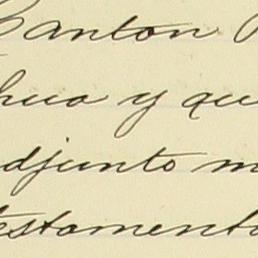 Canton
hua y que
adjunto m
testamento